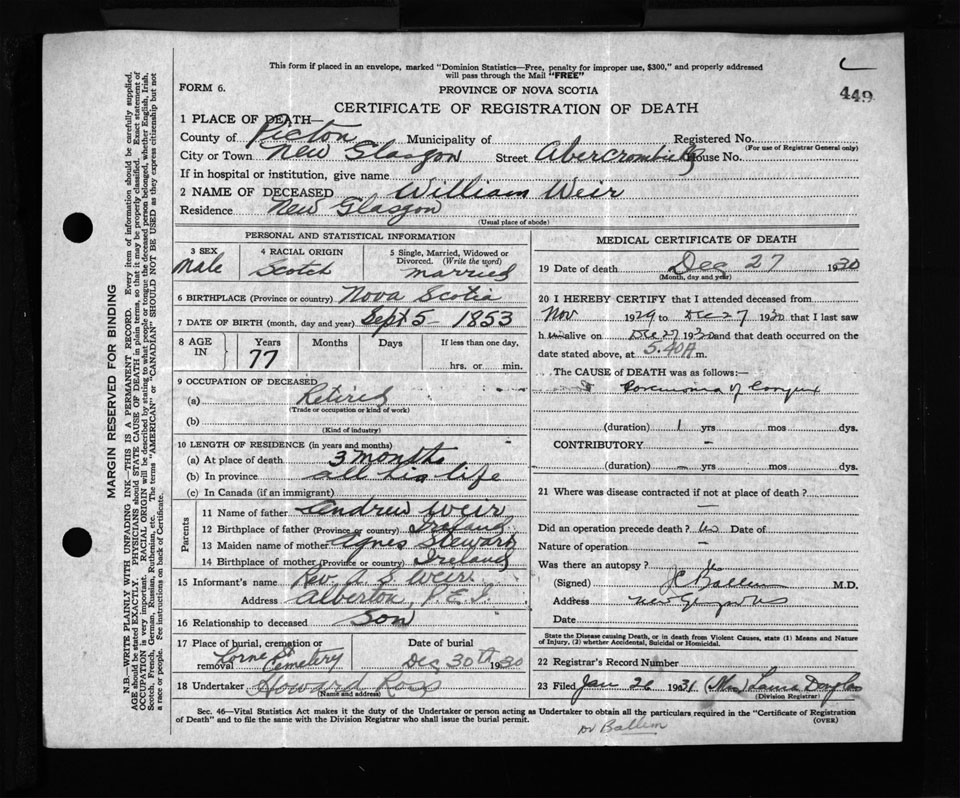 This form if placed in an envelope, marked "Dominion Statistics—Free, penalty for improper use, $300," and properly addressed
will pass through the Mail "FREE"
FORM 6.
PROVINCE OF NOVA SCOTIA
449
CERTIFICATE OF REGISTRATION OF DEATH
1 PLACE OF DEATH—
County of Picton Municipality of Registered No.
(For use of Registrar General only)
City or Town New Glasgow Street Abercrombie House No.
If in hospital or institution, give name
2 NAME OF DECEASED William Weir
Residence New Glasgow
(Usual place of abode)
PERSONAL AND STATISTICAL INFORMATION
3 SEX Male
4 RACIAL ORIGIN Scotch
5 Single, Married, Widowed or Divorced. (Write the word) married
6 BIRTHPLACE (Province or country) Nova Scotia
7 DATE OF BIRTH (month, day and year) Sept 5 1853
8 AGE IN Years 77 Months Days If less than one day,
hrs. or min.
9 OCCUPATION OF DECEASED
(a) Retired
(Trade or occupation or kind of work)
(b)
(Kind of industry)
10 LENGTH OF RESIDENCE (in years and months)
(a) At place of death 3 months
(b) In province all his life
(c) In Canada (if an immigrant)
Parents
11 Name of father Andrew Weir
12 Birthplace of father (Province or country) Ireland
13 Maiden name of mother Agnes Stewart
14 Birthplace of mother (Province or country) Ireland
15 Informant's name Rev. A. S. Weir
Address Alberton, P.E.I.
16 Relationship to deceased Son
17 Place of burial, cremation or removal Lorne St Cemetery
Date of burial Dec 30th 1930
18 Undertaker Howard Ross
(Name and address)
MEDICAL CERTIFICATE OF DEATH
19 Date of death Dec 27 1930
(Month, day and year)
20 I HEREBY CERTIFY that I attended deceased from
Nov 1929 to Dec 27 1930 that I last saw
h im alive on Dec 27 1930 and that death occurred on the
date stated above, at 5.40A m.
The CAUSE of DEATH was as follows:—
Carcinoma of
(duration) 1 yrs mos dys.
CONTRIBUTORY —
(duration) — yrs mos dys.
21 Where was disease contracted if not at place of death?
—
Did an operation precede death? no Date of
Nature of operation —
Was there an autopsy?
(Signed) J C Ballem M.D.
Address New Glasgow NS
Date
State the Disease causing Death, or in death from Violent Causes, state (1) Means and Nature
of Injury, (2) whether Accidental, Suicidal or Homicidal.
22 Registrar's Record Number
23 Filed Jan 26 1931 (Mrs) Douglas
(Division Registrar)
Sec. 46—Vital Statistics Act makes it the duty of the Undertaker or person acting as Undertaker to obtain all the particulars required in the "Certificate of Registration
of Death" and to file the same with the Division Registrar who shall issue the burial permit.
(OVER)
Dr Ballem
MARGIN RESERVED FOR BINDING
N.B.—WRITE PLAINLY WITH UNFADING INK—THIS IS A PERMANENT RECORD. Every item of information should be carefully supplied.
AGE should be stated EXACTLY. PHYSICIANS should STATE CAUSE OF DEATH in plain terms, so that it may be properly classified. Exact statement of
OCCUPATION is very important. RACIAL ORIGIN will be described by stating to what people or tongue the deceased person belonged, whether English, Irish,
Scotch, French, German, Russian, Ruthenian, etc. The terms "AMERICAN" or "CANADIAN" SHOULD NOT BE USED as they express citizenship but not
a race or people. See instructions on back of Certificate.